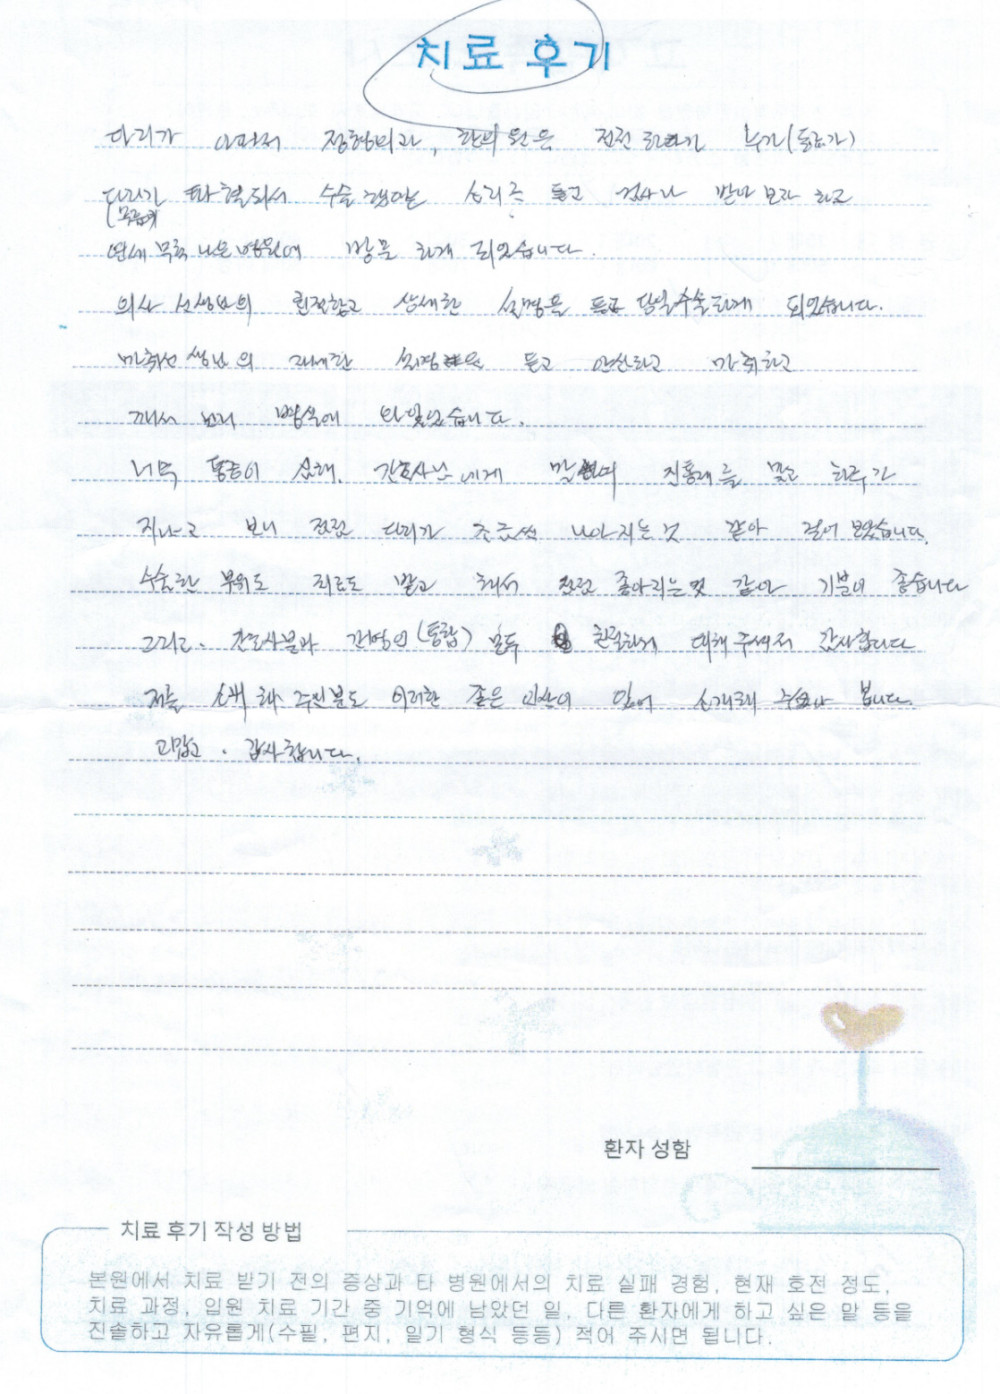 치료 후기
다리가 아파서 정형외과, 한의원은 전전하다가 누가(동료가)
다리가 수술했다는 소리를 듣고 검사나 받아보라 하고
연세 병원에 방문 하게 되었습니다.
의사 선생님의 친절함과 상세한 설명을 듣고 당일수술하게 되었습니다.
마취선생님의 설명을 듣고 안심하고 마취하고
깨서 보니 병실에 와있었습니다.
너무 통증이 심해. 간호사님에게 말하여 진통제를 맞고 하루가
지나고 보니 점점 다리가 조금씩 나아지는것 같아 걸어 보았습니다.
수술한 부위도 치료도 받고 해서 점점 좋아지는것 같아 기분이 좋습니다
그리고. 간호사분과 간병인(통합) 모두 친절하게 대해 주셔서 감사합니다
저를 소개 해 주신분도 이러한 좋은 인상이 있어 소개해 주셨나 봅니다.
고맙고. 감사합니다.
환자 성함
치료 후기 작성 방법
본원에서 치료 받기 전의 증상과 타 병원에서의 치료 실패 경험, 현재 호전 정도,
치료 과정, 입원 치료 기간 중 기억에 남았던 일, 다른 환자에게 하고 싶은 말 등을
진솔하고 자유롭게(수필, 편지, 일기 형식 등등) 적어 주시면 됩니다.